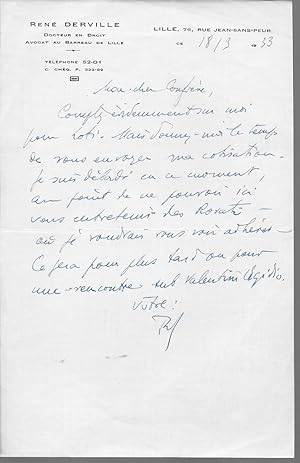 RENÉ DERVILLE
DOCTEUR EN DROIT
AVOCAT AU BARREAU DE LILLE
TÉLÉPHONE 52-01
C. CHÈQ. P.
LILLE, 76, RUE JEAN-SANS-PEUR
CE 18/3 1933
Mon cher Confrère,
Comptez évidemment sur moi
pour Mais donnez-moi le temps
de vous envoyer ma cotisation.
Je suis débordé en ce moment,
au point de ne pouvoir ici
vous entretenir des Rosati
où je voudrais vous voir adhérer
Ce sera pour plus tard ou pour
une rencontre sub Valentini
Votre!